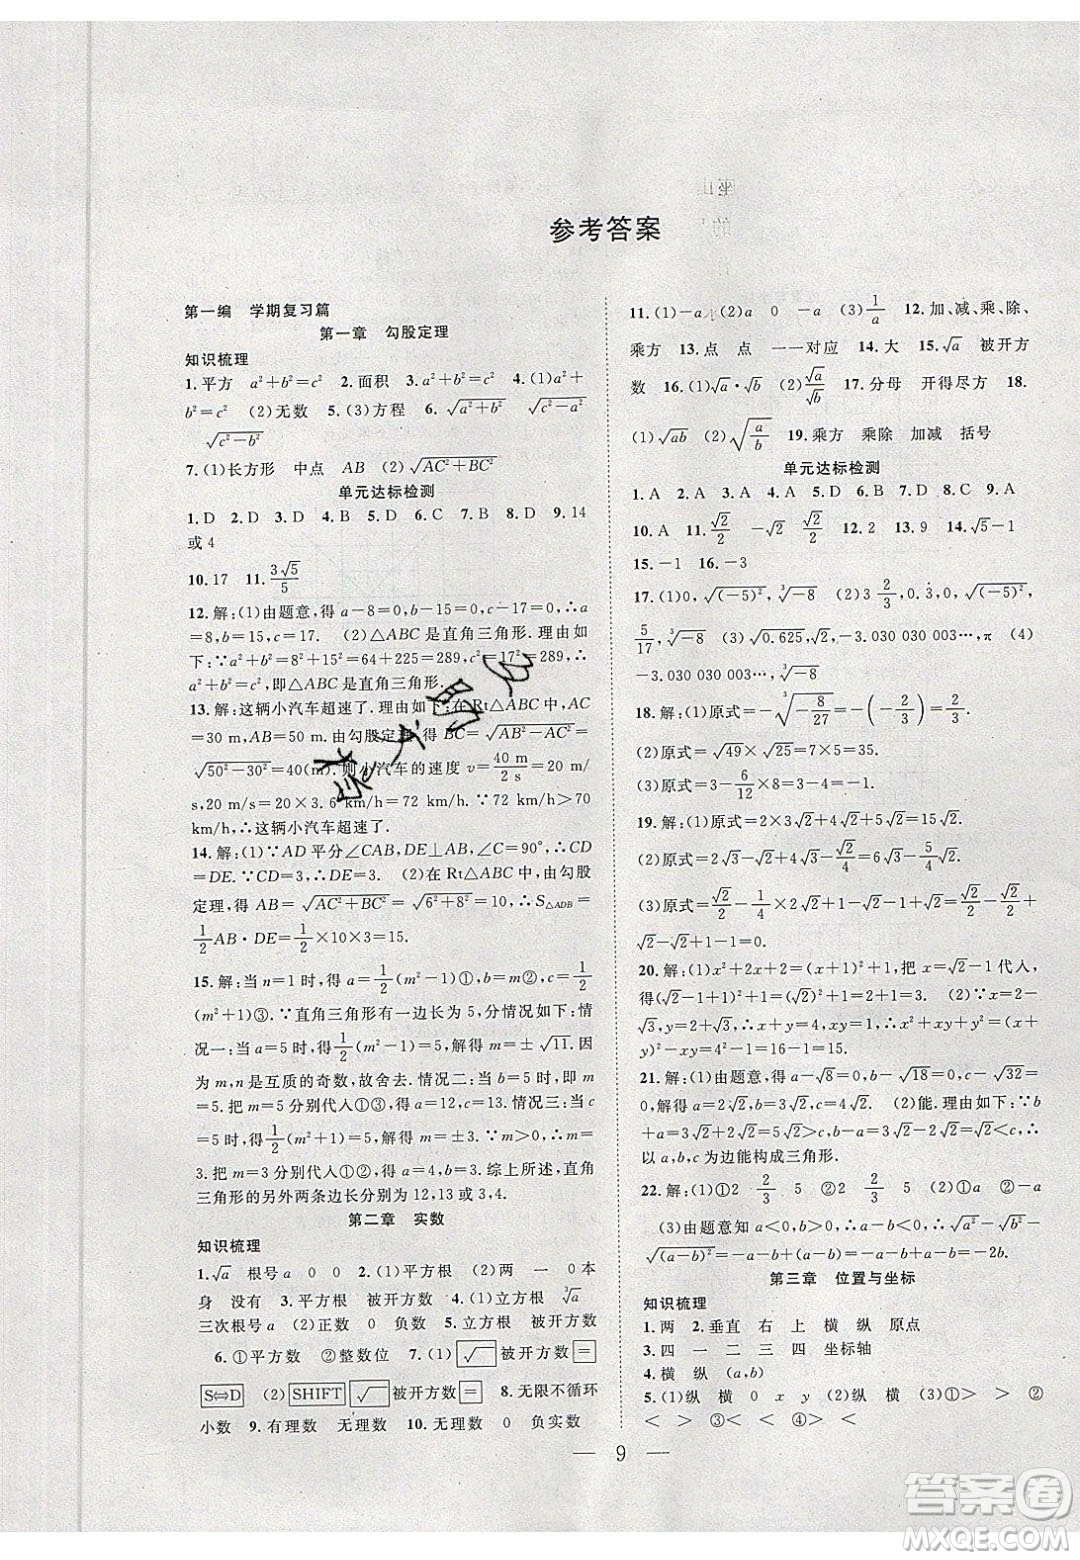 参考答案
第一编　学期复习篇
第一章　勾股定理
知识梳理
1.平方　a²+b²=c²　2.面积　3.a²+b²=c²　4.(1)a²+
b²=c²　(2)无数　5.(3)方程　6.√(a²+b²)　√(c²-a²)
√(c²-b²)
7.(1)长方形　中点　AB　(2)√(AC²+BC²)
单元达标检测
1.D　2.D　3.D　4.B　5.A　6.C　7.B　8.D　9.14
或4
10.17　11.3√5/5
12.解:(1)由题意,得a-8=0,b-15=0,c-17=0,∴a
=8,b=15,c=17.　(2)△ABC是直角三角形.理由如
下:∵a²+b²=64+225=289,c²=17²=289,∴
a²+b²=c²,即△ABC是直角三角形.
13.解:这辆小汽车超速了.理由如下:在Rt△ABC中,AC
=30 m,AB=50 m.由勾股定理,得BC=√(AB²-AC²)=
√(50²-30²)=40(m).则小汽车的速度v=40/2 m/s=20 m
/s,20 m/s=20×3.6 km/h=72 km/h.∵72 km/h>70
km/h,∴这辆小汽车超速了.
14.解:(1)∵AD平分∠CAB,DE⊥AB,∠C=90°,∴CD
=DE.∵CD=3,∴DE=3.　(2)在Rt△ABC中,由勾股
定理,得AB=√(AC²+BC²)=√(6²+8²)=10,∴S△ADB=
1/2AB·DE=1/2×10×3=15.
15.解:当n=1时,得a=1/2(m²-1)①,b=m②,c=1/2
(m²+1)③.∵直角三角形有一边长为5,分情况如下:情
况一:当a=5时,得1/2(m²-1)=5,解得m=±√11.因
为m,n是互质的奇数,故舍去.情况二:当b=5时,即m
=5.把m=5分别代入①③,得a=12,c=13.情况三:当c
=5时,得1/2(m²+1)=5,解得m=±3.∵m>0,∴m=
3.把m=3分别代入①②,得a=4,b=3.综上所述,直角
三角形的另外两条边长分别为12,13或3,4.
第二章　实数
知识梳理
1.√a　根号a　0　0　2.(1)平方根　(2)两　一　0本
身　没有　3.平方根　被开方数　4.(1)立方根　³√a
三次根号a　(2)正数　0　负数　5.立方根　被开方数
6.①平方数　②整数位　7.(1)√　被开方数　=
S⇔D　(2)SHIFT　√　被开方数　=　8.无限不循环
小数　9.有理数　无理数　10.无理数　0　负实数
11.(1)-a　(2)a　0　-a　(3)1/a　12.加、减、乘、除、
乘方　13.点　点　一一对应　14.大　15.√a　被开方
数　16.(1)√a·√b　(2)√a/√b　17.分母　开得尽方　18.
(1)√ab　(2)√(a/b)　19.乘方　乘除　加减　括号
单元达标检测
1.A　2.A　3.A　4.A　5.D　6.B　7.D　8.C　9.A
10.A　11.√2/2　-√2　√2/2　12.2　13.9　14.√5-1
15.-1　16.-3
17.(1)0,√(-5)²,³√-8　(2)3 2/3,0.3̇,√(-5)²,
5/17,³√-8　(3)√0.625,√2,-3.030 030 003…,π　(4)
-3.030 030 003…,³√-8
18.解:(1)原式=-³√(-8/27)=-(-2/3)=2/3.
(2)原式=√49×√25=7×5=35.
(3)原式=3-6/12×8=3-4=-1.
19.解:(1)原式=2×3√2+4√2+5√2=15√2.
(2)原式=2√3-√3+√3/3-√2/4=4√3/3-√2/4.
(3)原式=√2/2-1/4×2√2+1-√2=√2/2-√2/2+1-
√2+√2-1=0.
20.解:(1)x²+2x+2=(x+1)²+1,把x=√2-1代入,
得(√2-1+1)²+1=(√2)²+1=2+1=3.　(2)∵x=2-
√3,y=2+√3,∴x+y=4,xy=1,∴x²+y²+xy=(x+
y)²-xy=4²-1=16-1=15.
21.解:(1)由题意,得a-√8=0,b-√18=0,c-√32=
0,解得a=2√2,b=3√2,c=4√2.　(2)能.理由如下:∵b
+a=3√2+2√2=5√2,c=4√2,5√2>4√2,即a+b>c,∴
以a,b,c为边能构成三角形.
22.解:(1)①2　2/3　5　②2　2/3　5　(2)①a　②-a
(3)由题意知a<0,b>0,∴a-b<0,∴√a²-√b²-
√(a-b)²=-a-b+(a-b)=-2b.
第三章　位置与坐标
知识梳理
1.两　2.垂直　右　上　横　纵　原点
3.四　一　二　三　四　坐标轴
4.横　纵　(a,b)
5.(1)纵　横　0　x　y　(2)纵　横　(3)①>　>　②
<　>　③<　<　④>　<
9
答案圈
MXQE.COM